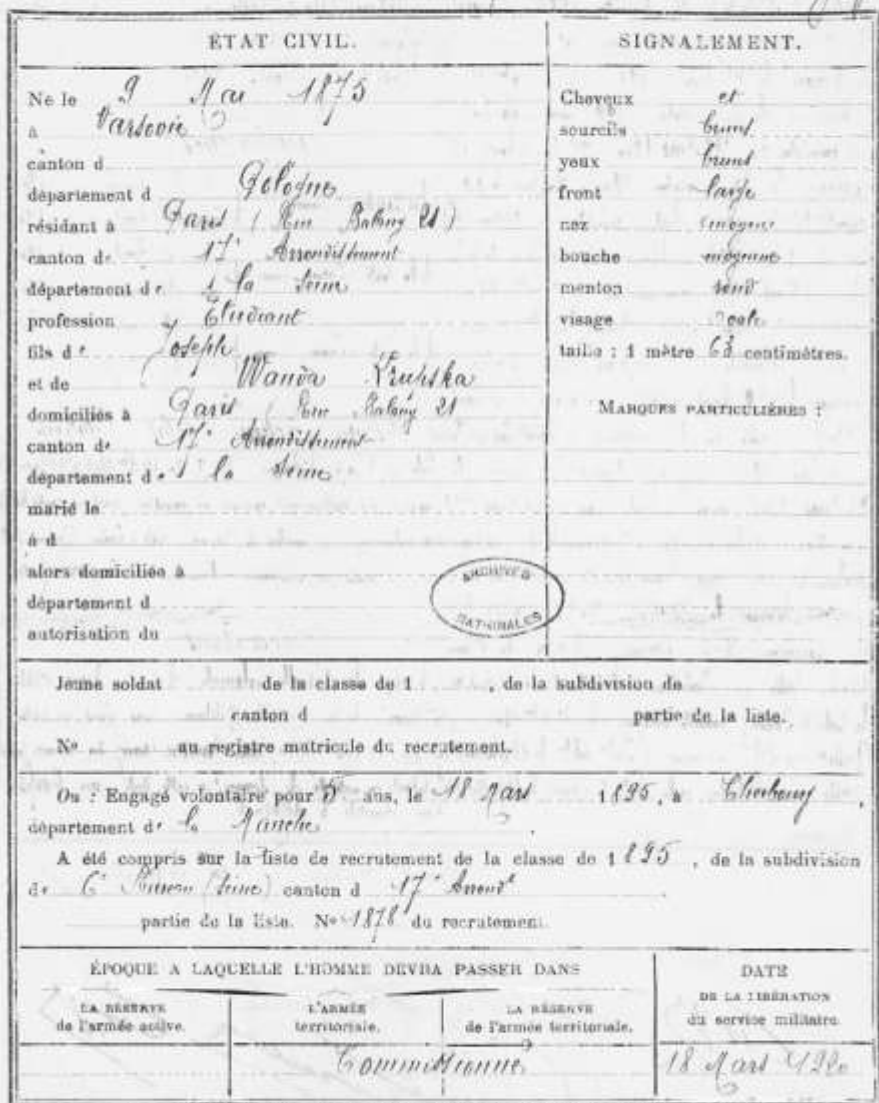 ÉTAT CIVIL.
Né le 9 Mai 1875
à Varsovie
canton d
département d Pologne
résidant à Paris ( Rue Balagny 21 )
canton de 17e Arrondissement
département de la Seine
profession Etudiant
fils de Joseph
et de Wanda Krupska
domiciliés à Paris, Rue Balagny 21
canton de 17e Arrondissement
département de la Seine
marié le
à d
alors domiciliée à
département d
autorisation du
SIGNALEMENT.
Cheveux et
sourcils bruns
yeux bruns
front large
nez moyen
bouche moyenne
menton rond
visage ovale
taille : 1 mètre 63 centimètres.
MARQUES PARTICULIÈRES :
ARCHIVES
NATIONALES
Jeune soldat de la classe de 1 , de la subdivision de
canton d partie de la liste.
No au registre matricule du recrutement.
Ou : Engagé volontaire pour 5 ans, le 18 Mars 1895, à Cherbourg,
département de la Manche
A été compris sur la liste de recrutement de la classe de 1895, de la subdivision
de 6e Bureau (Seine) canton d 17e Arrondt
partie de la liste. No 1878 du recrutement.
ÉPOQUE A LAQUELLE L'HOMME DEVRA PASSER DANS
LA RÉSERVE
de l'armée active.
L'ARMÉE
territoriale.
LA RÉSERVE
de l'armée territoriale.
Commissionné
DATE
DE LA LIBÉRATION
du service militaire.
18 Mars 1920